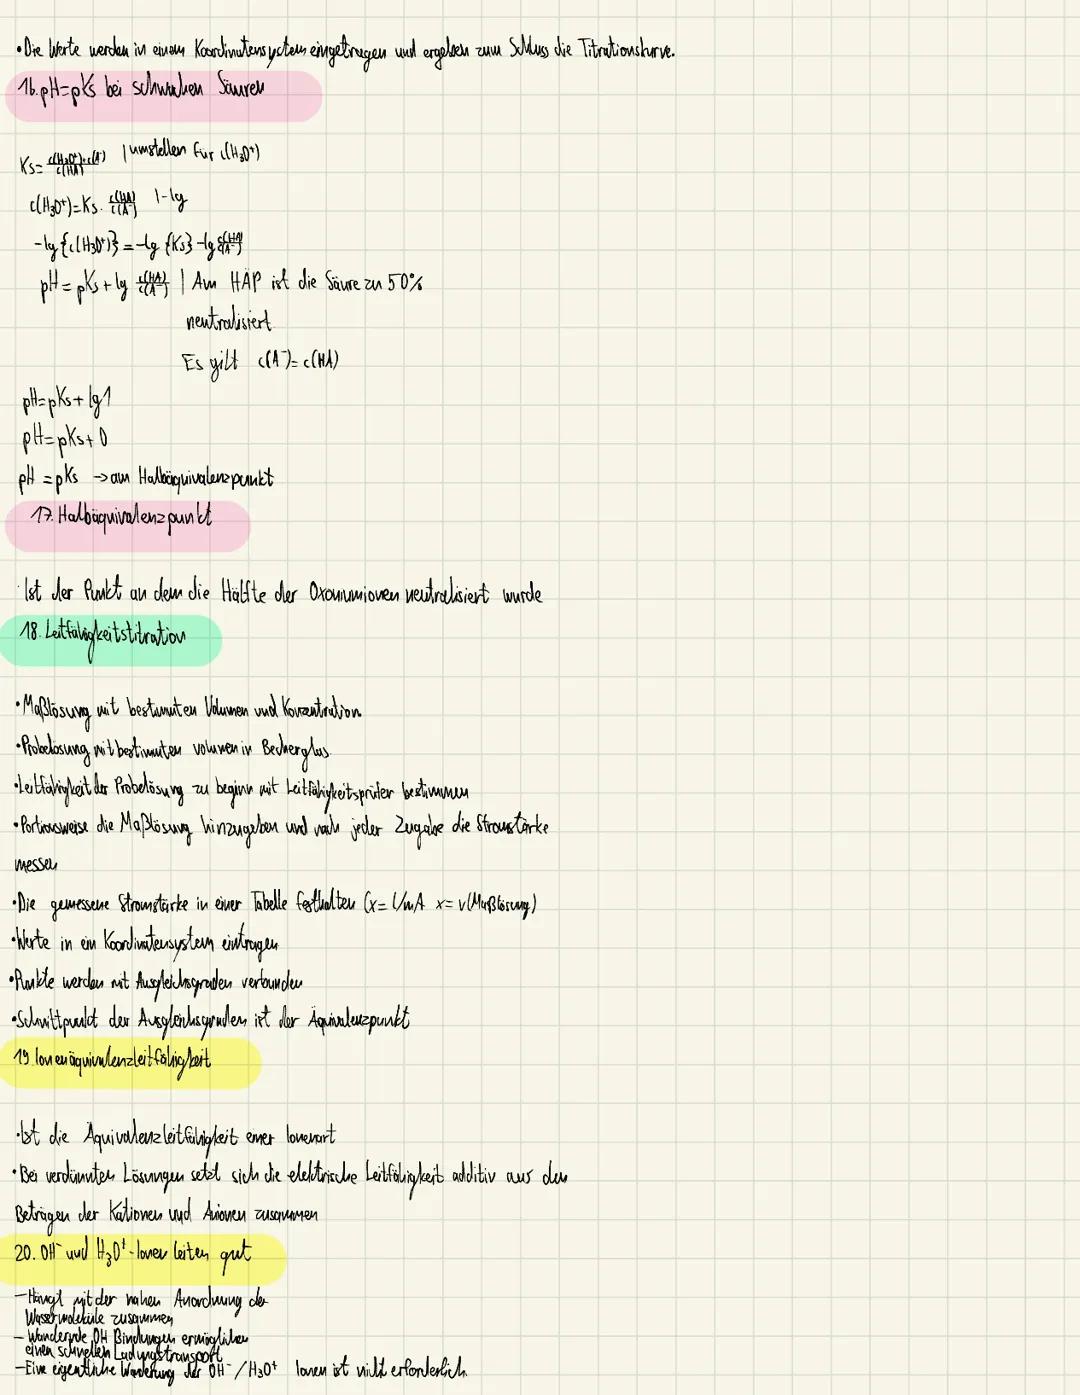 • Die Werte werden in einem Koordinatensystem eingetragen und ergeben zum Schluss die Titrationskurve.
16. pH=pKs bei schwachen Säuren
Ks= c(H₃O⁺)·c(A⁻)/c(HA) | umstellen für c(H₃O⁺)
c(H₃O⁺)=Ks· c(HA)/c(A⁻) |-lg
-lg{c(H₃O⁺)} = -lg {Ks} -lg c(HA)/c(A⁻)
pH = pKs + lg c(HA)/c(A⁻) | Am HÄP ist die Säure zu 50%
neutralisiert
Es gilt c(A⁻)= c(HA)
pH=pKs+ lg1
pH=pKs+ 0
pH = pKs → am Halbäquivalenzpunkt
17. Halbäquivalenzpunkt
· Ist der Punkt an dem die Hälfte der Oxoniumionen neutralisiert wurde
18. Leitfähigkeitstitration
• Maßlösung mit bestimmten Volumen und Konzentration
• Probelösung mit bestimmten volumen in Becherglas
• Leitfähigkeit der Probelösung zu beginn mit Leitfähigkeitsprüfer bestimmen
• Portionsweise die Maßlösung hinzugeben und nach jeder Zugabe die Stromstärke
messen
• Die gemessene Stromstärke in einer Tabelle festhalten (x= I/mA x= v(Maßlösung)
• Werte in ein Koordinatensystem eintragen
• Punkte werden mit Ausgleichsgraden verbunden
• Schnittpunkt der Ausgleichsgraden ist der Äquivalenzpunkt
19. Ionenäquivalenzleitfähigkeit
• Ist die Äquivalenzleitfähigkeit einer Ionenart
• Bei verdünnten Lösungen setzt sich die elektrische Leitfähigkeit additiv aus den
Beträgen der Kationen und Anionen zusammen
20. OH⁻ und H₃O⁺-Ionen leiten gut
- Hängt mit der nahen Anordnung der
Wassermoleküle zusammen
- Wandernde OH Bindungen ermöglichen
einen schnellen Ladungstransport
- Eine eigentliche Wanderung der OH⁻/H₃O⁺ Ionen ist nicht erforderlich.